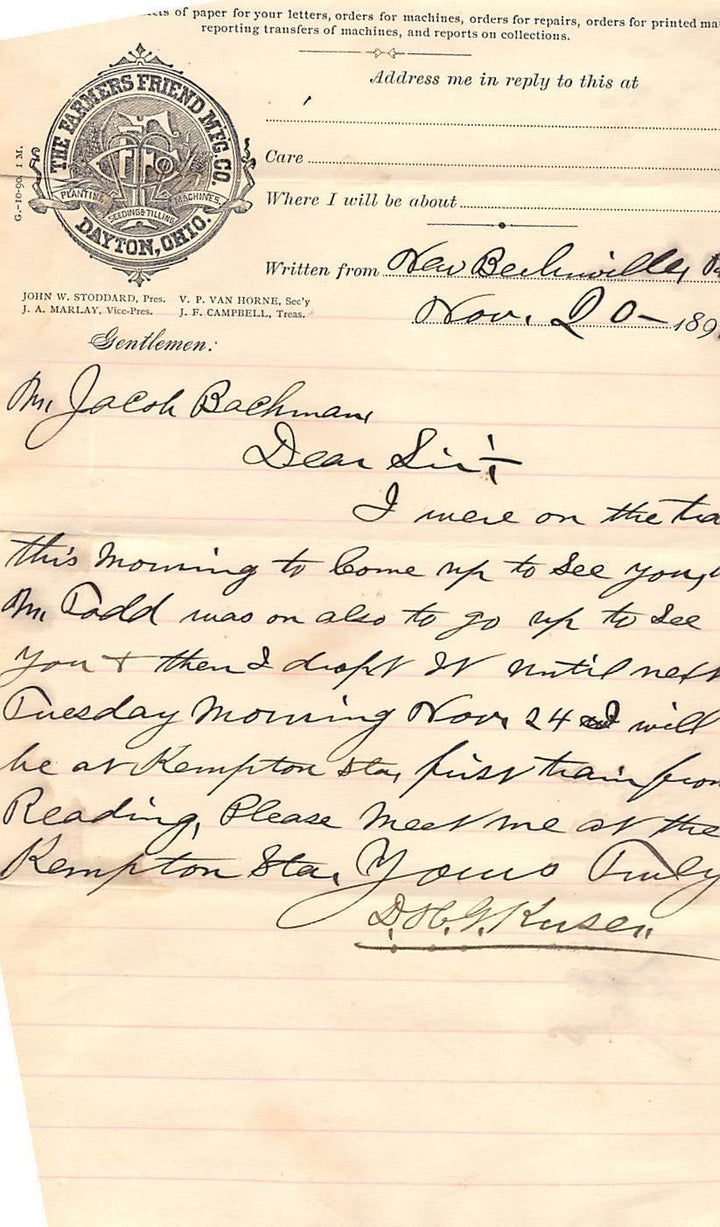 ets of paper for your letters, orders for machines, orders for repairs, orders for printed mat
reporting transfers of machines, and reports on collections.
Address me in reply to this at
THE FARMERS FRIEND MFG. CO.
PLANTING
SEEDING & TILLING
MACHINES.
DAYTON, OHIO.
G.-10-90. 1 M.
Care
Where I will be about
Written from New
JOHN W. STODDARD, Pres. V. P. VAN HORNE, Sec'y
J. A. MARLAY, Vice-Pres. J. F. CAMPBELL, Treas.
Nov. 20 – 189
Gentlemen:
Mr. Jacob Bachman
Dear Sir:
I were on the tra
this Morning to Come up to See you,
Mr. Todd was on also to go up to See
you & then I dropt It until next
Tuesday Morning Nov. 24 I will
be at Kempton Sta, first train from
Reading, Please Meet me at the
Kempton Sta. Yours Truly
D. H. G.